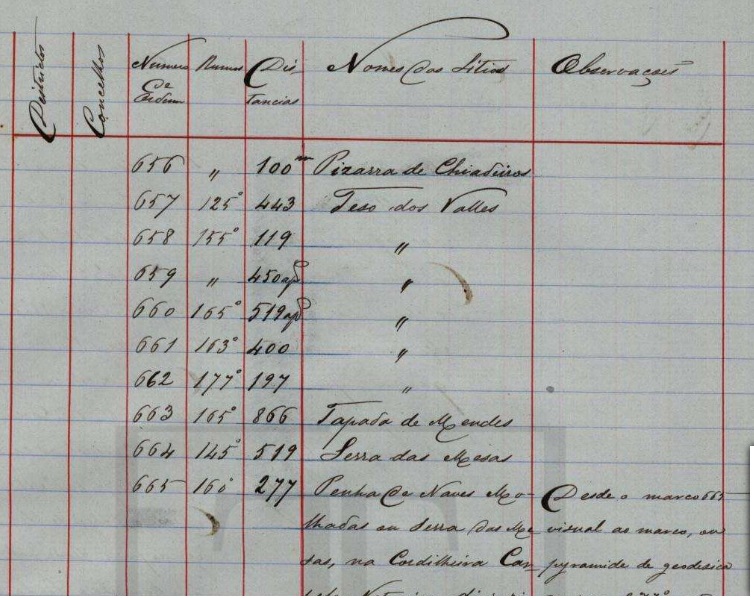 Districtos
Concelhos
Numero de Ordem
Rumos
Distancias
Nomes dos Sitios
Observações
656 " 100m Pizarra de Chiadeiros
657 125° 443 Teso dos Valles
658 155° 119 "
659 " 450 apº "
660 165° 519 apº "
661 163° 400 "
662 177° 197 "
663 165° 866 Tapada de Mendes
664 145° 519 Serra das Mesas
665 160° 277 Penha de Naves Mo- Desde o marco 665
lhadas ou Serra das Me visual ao marco, ou
sas, na Cordilheira Car- pyramide de geodesica